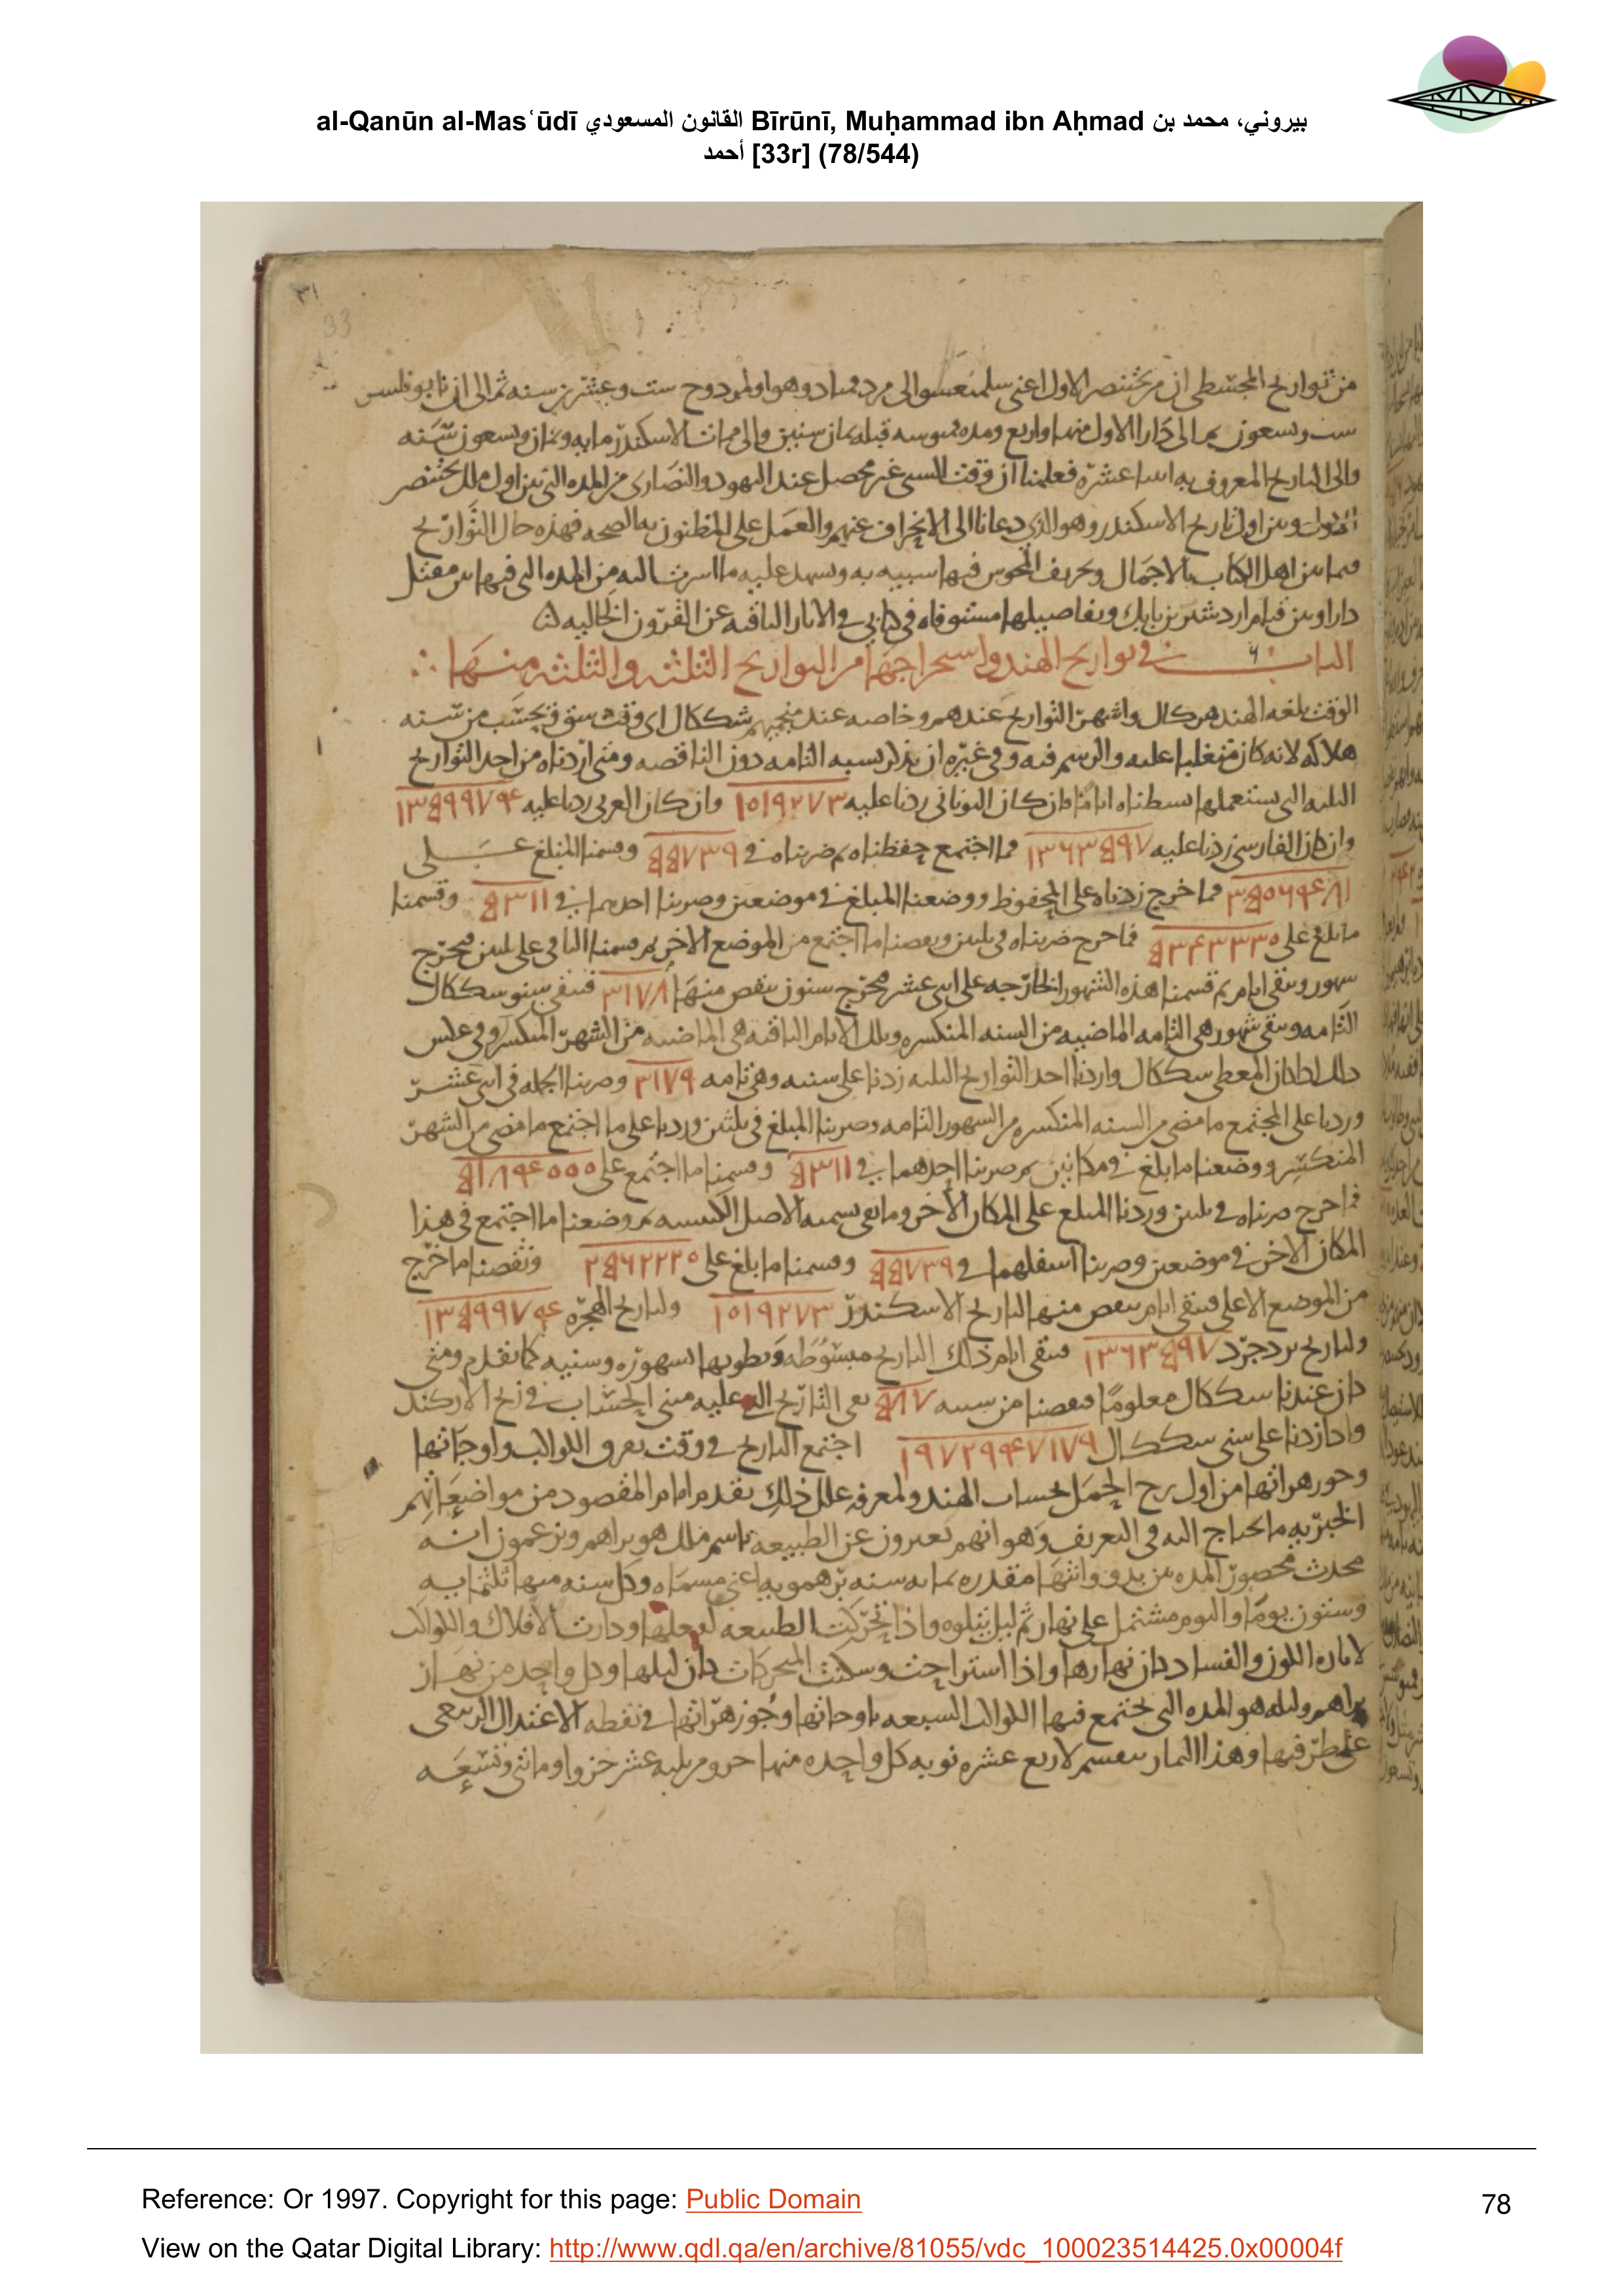 al-Qanūn al-Masʿūdī القانون المسعودي Bīrūnī, Muḥammad ibn Aḥmad بيروني، محمد بن
أحمد [33r] (78/544)
٣١
33
من تواريخ المجسطي ان من بختنصر الاول اعني الى وهو اول ست وعشرين سنه ثم الى ان
ست وسعون الى دارا الاول اربع ومده سنين والى ممات الاسكندر مايه وثمان وسعون سنه
والى الباريخ المعروف به عشره فعلمنا ان وقت السبي غير محصل عند اليهود والنصارى من المده التي بين اول ملك بختنصر
وبين اول تاريخ الاسكندر وهو الذي دعانا الى الانحراف عنهم والعمل على المظنون به الصحه فهذه حال التواريخ
فيما بين اهل الكتاب بالاجمال وتحريف المجوس فيها شبيه به ويشهد عليه ما اشرت اليه من المده التي فيها بين مقتل
دارا وبين قيام اردشير بن بابك وتفاصيلها مستوفاه في كتابي في الاثار الباقيه عن القرون الخاليه
الباب ٦ في تواريخ الهند واستخراجها من التواريخ الثلثه والثلثه منها
الوقت بلغه الهند هو كال واشهر التواريخ عندهم وخاصه عند منجميهم شككال اى وقت شق فيحسب من سنه
هلاكه لانه كان متغلبا عليه والرسم فيه وفي غيره ان يذكر بسنيه التامه دون الناقصه ومتى اردناه من احد التواريخ
الثلثه التي نستعملها بسطناه اياما فان كان اليوناني زدنا عليه ١٥١٩٢٧٣ وان كان العربي زدنا عليه ١٣٥٩٩٧٩٤
وان كان الفارسي زدنا عليه ١٣٦٣٥٩٧ فما اجتمع حفظناه ثم ضربناه في ٥٥٧٣٩ وقسمنا المبلغ على
٣٥٥٦٩٤٨١ فما خرج زدناه على المحفوظ ووضعنا المبلغ في موضعين وضربنا احدهما في ٥٣١١ وقسمنا
ما بلغ على ٥٣٤٣٣٣٥ فما خرج ضربناه في ثلثين ونقصنا ما اجتمع من الموضع الاخر ثم قسمنا الباقي على ثلثين فيخرج
شهور وتبقى ايام ثم قسمنا هذه الشهور الخارجه على اثنى عشر فيخرج سنون ننقص منها ٣١٧٨ فتبقى سنو شككال
التامه وتبقى شهور هي التامه الماضيه من السنه المنكسره وتلك الايام الباقيه هي الماضيه من الشهر المنكسر وفي عكس
ذلك اذا كان المعطى شككال واردنا احد التواريخ الثلثه زدنا على سنيه وهي تامه ٣١٧٩ وضربنا الجمله في اثنى عشر
وزدنا على المجتمع ما مضى من السنه المنكسره من الشهور التامه وضربنا المبلغ في ثلثين وزدنا على ما اجتمع ما مضى من الشهر
المنكسر ووضعنا ما بلغ في مكانين ثم ضربنا احدهما في ٥٣١١ وقسمنا ما اجتمع على ٥١٨٩٤٥٥٥
فما خرج ضربناه في ثلثين وزدنا المبلغ على المكان الاخر وما بقي نسميه الاصل ثم وضعنا ما اجتمع في هذا
المكان الاخر في موضعين وضربنا اسفلهما في ٥٥٧٣٩ وقسمنا ما بلغ على ٣٥٦٢٢٢٥ ونقصنا ما خرج
من الموضع الاعلى فتبقى ايام ننقص منها لتاريخ الاسكندر ١٥١٩٢٧٣ ولتاريخ الهجره ١٣٥٩٩٧٩٤
ولتاريخ يزدجرد ١٣٦٣٥٩٧ فتبقى ايام ذلك التاريخ مبسوطه ونطويها لشهوره وسنيه كما تقدم ومتى
كان عندنا شككال معلوما ونقصنا من سنيه ٥٨٧ بقي التاريخ الذي عليه مبنى الحساب في زيج الاركند
واذا زدنا على سني شككال ١٩٧٢٩٩٤٧١٧٩ اجتمع التاريخ في وقت تفرق الكواكب واوجاتها
وجوزهراتها من اول برج الحمل بحساب الهند ولمعرفه علل ذلك نقدم امام المقصود من مواضعاتهم
الخبريه ما يحتاج اليه في التعريف وهو انهم يعبرون عن الطبيعه باسم ملك هو براهم ويزعمون انه
محدث محصور المده بين بدو وانتها مقدره بمايه سنه براهمويه اعني مسماه وكل سنه منها ثلثمايه
وستون يوما واليوم مشتمل على نهار ثم ليل يتلوه واذا تحركت الطبيعه لفعلها ودارت الافلاك والكواكب
لاثاره الكون والفساد كان نهارها واذا استراحت وسكنت المتحركات كان ليلها وكل واحد من نهار
براهم وليله هو المده التي تجتمع فيها الكواكب السبعه باوجاتها وجوزهراتها في نقطه الاعتدال الربيعي
على طرفيها وهذا النهار ينقسم لاربع عشره نوبه كل واحده منها
Reference: Or 1997. Copyright for this page: Public Domain
78
View on the Qatar Digital Library: http://www.qdl.qa/en/archive/81055/vdc_100023514425.0x00004f